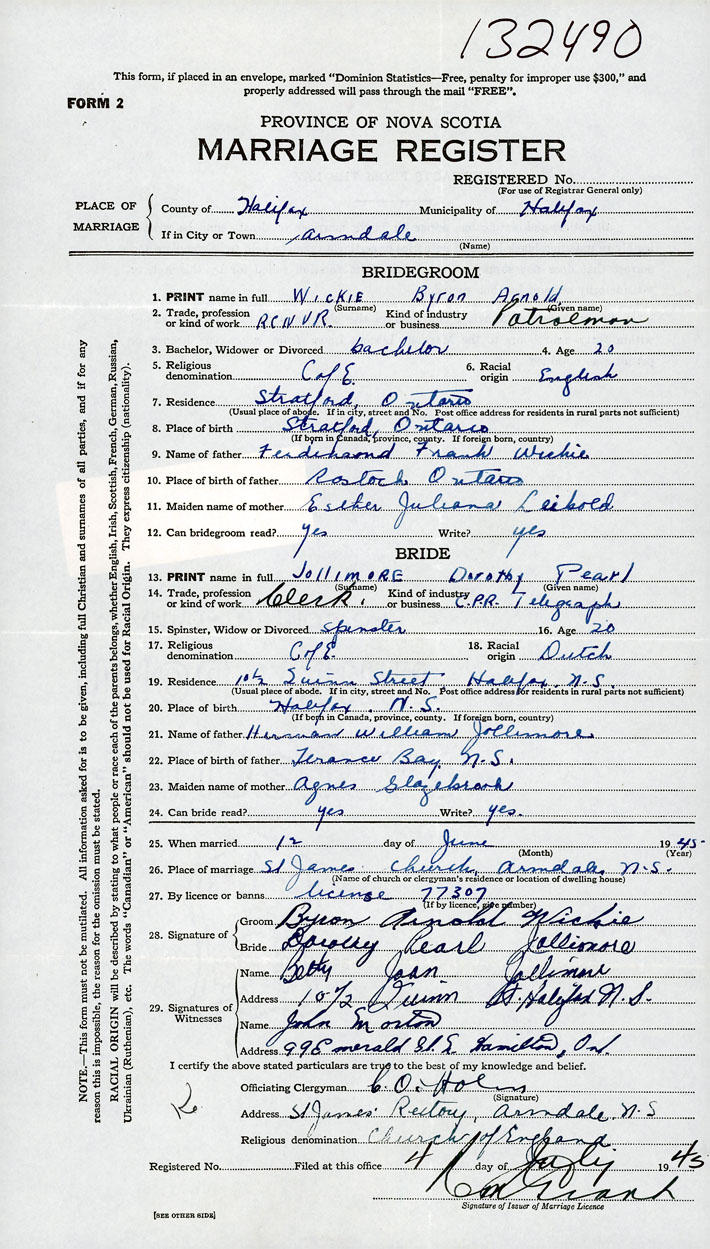 132490
This form, if placed in an envelope, marked "Dominion Statistics—Free, penalty for improper use $300," and
properly addressed will pass through the mail "FREE".
FORM 2
PROVINCE OF NOVA SCOTIA
MARRIAGE REGISTER
REGISTERED No.
(For use of Registrar General only)
PLACE OF MARRIAGE
County of Halifax Municipality of Halifax
If in City or Town Armdale
(Name)
BRIDEGROOM
1. PRINT name in full WICKIE Byron Arnold
(Surname) (Given name)
2. Trade, profession or kind of work RCNVR. Kind of industry or business Patrolman
3. Bachelor, Widower or Divorced bachelor 4. Age 20
5. Religious denomination C of E. 6. Racial origin English
7. Residence Stratford, Ontario
(Usual place of abode. If in city, street and No. Post office address for residents in rural parts not sufficient)
8. Place of birth Stratford, Ontario
(If born in Canada, province, county. If foreign born, country)
9. Name of father Ferdinand Frank Wickie
10. Place of birth of father Rostock Ontario
11. Maiden name of mother Esther Juliana Leibold
12. Can bridegroom read? yes Write? yes
BRIDE
13. PRINT name in full JOLLIMORE Dorothy Pearl
(Surname) (Given name)
14. Trade, profession or kind of work Clerk. Kind of industry or business C.P.R. Telegraph
15. Spinster, Widow or Divorced spinster 16. Age 20
17. Religious denomination C of E. 18. Racial origin Dutch
19. Residence 10½ Quinn Street Halifax N.S.
(Usual place of abode. If in city, street and No. Post office address for residents in rural parts not sufficient)
20. Place of birth Halifax, N.S.
(If born in Canada, province, county. If foreign born, country)
21. Name of father Herman William Jollimore
22. Place of birth of father Terance Bay, N.S.
23. Maiden name of mother Agnes Glazebrook
24. Can bride read? yes Write? yes.
25. When married 12 day of June 1945
(Month) (Year)
26. Place of marriage St James Church, Armdale, N.S.
(Name of church or clergyman's residence or location of dwelling house)
27. By licence or banns licence 77307
(If by licence, give number)
28. Signature of
Groom Byron Arnold Wickie
Bride Dorothy Pearl Jollimore
29. Signatures of Witnesses
Name Betty Joan Jollimore
Address 10½ Quinn St. Halifax N.S.
Name John Morton
Address 99 Emerald St. S. Hamilton, Ont.
I certify the above stated particulars are true to the best of my knowledge and belief.
Officiating Clergyman
(Signature)
Address St James' Rectory, Armdale, N.S
Religious denomination Church of England
Registered No. Filed at this office 4 day of July 1945
Signature of Issuer of Marriage Licence
[SEE OTHER SIDE]
NOTE.—This form must not be mutilated. All information asked for is to be given, including full Christian and surnames of all parties, and if for any
reason this is impossible, the reason for the omission must be stated.
RACIAL ORIGIN will be described by stating to what people or race each of the parents belongs, whether English, Irish, Scottish, French, German, Russian,
Ukrainian (Ruthenian), etc. The words "Canadian" or "American" should not be used for Racial Origin. They express citizenship (nationality).